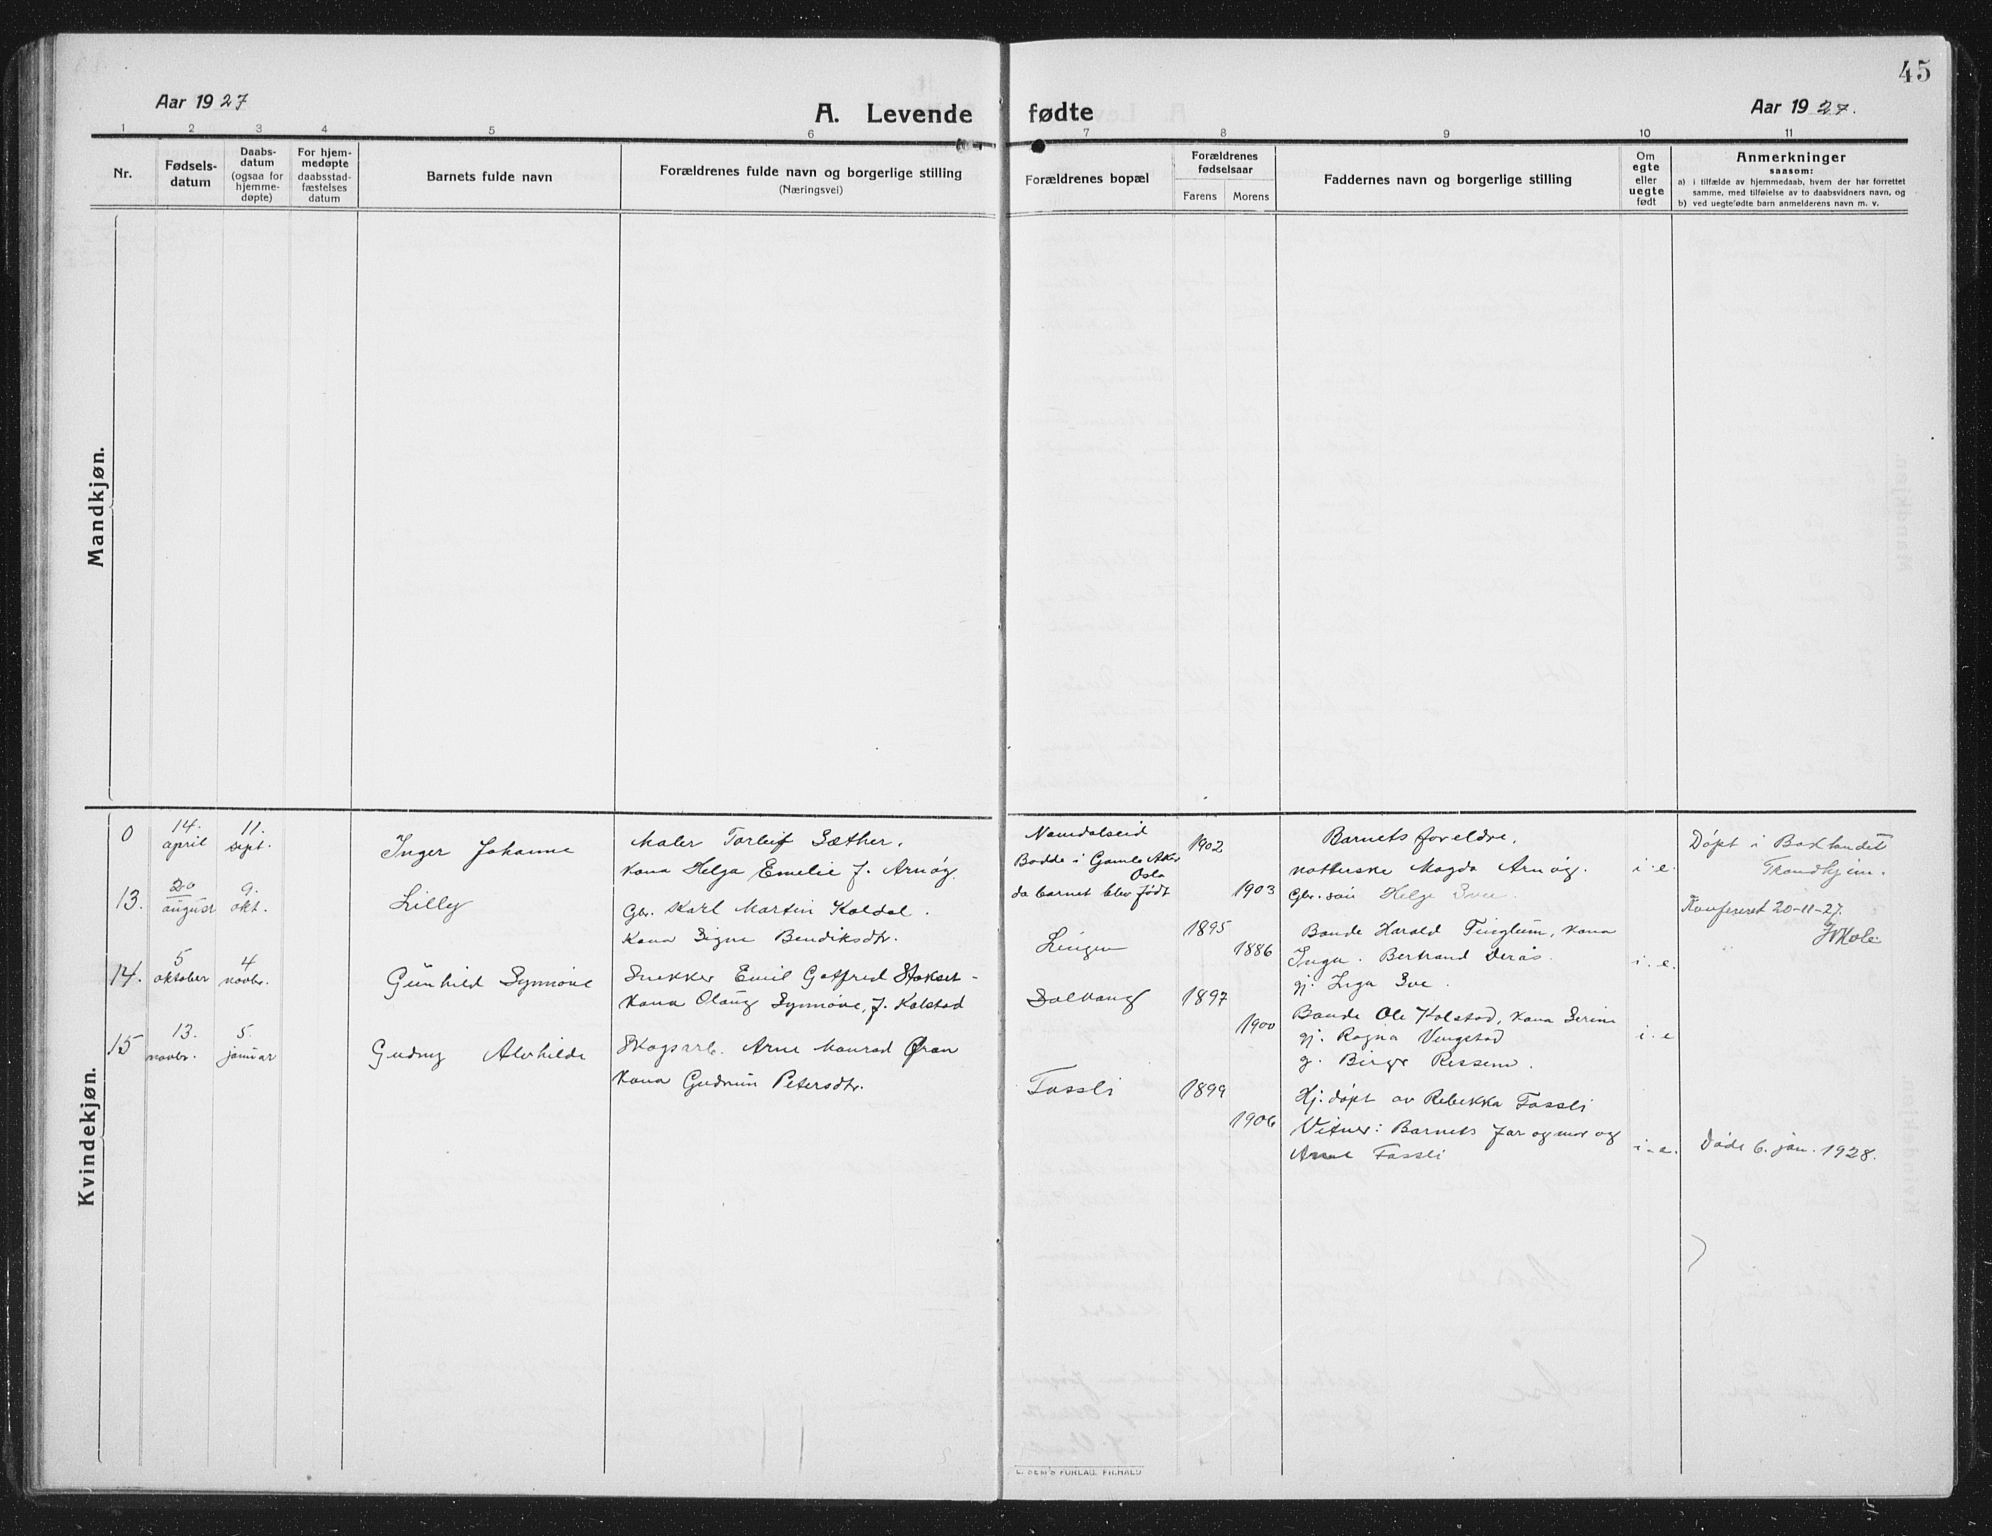 45
Aar 1927
A. Levende fødte
Aar 1927.
1 2 3 4 5 6 7 8 9 10 11
Nr.
Fødsels-
datum
Daabs-
datum
(ogsaa for
hjemme-
døpte)
For hjem-
medøpte
daabsstad-
fæstelses
datum
Barnets fulde navn
Forældrenes fulde navn og borgerlige stilling
(Næringsvei)
Forældrenes bopæl
Forældrenes
fødselsaar
Farens Morens
Faddernes navn og borgerlige stilling
Om
egte
eller
uegte
født
Anmerkninger
saasom:
a) i tilfælde av hjemmedaab, hvem der har forrettet
samme, med tilføielse av to daabsvidners navn, og
b) ved uegtefødte barn anmelderens navn m. v.
Mandkjøn.
Kvindekjøn.
0
14.
april
11.
sept.
Inger Johanne
Maler Torleif Sæther,
kona Helga Emelie f. Arnøy.
Namdalseid
Bodde i Gamle Aker
Oslo
da barnet blev født
1902
1903
Barnets foreldre,
Magda Arnøy.
Gbr. søn Helge
i. e.
Døpt i Baklandet
Trondhjem.
13.
20
august
9.
okt.
Lilly
Gbr. Karl Martin Kaldal.
Kona Signe Bendiksdtr.
1895
1886
Bonde Harald Tinglum, kona
Inga. Bertrand Derås.
gj.
i. e.
Konfereret 20-11-27.
14.
5
oktober
4
novbr.
Gunhild Synnøve
Snekker Emil Gotfred Stokset
kona Olaug Synnøve, f. Kolstad
Solvang
1897
1900
Bonde Ole Kolstad, kona Serine
gj. Ragna Vengstad
g. Birger Rissem.
i. e
15
13.
novbr.
5.
januar
Gudny Alvhilde
Skogsarb. Arne Monrad Øran
kona Gudrun Petersdtr.
Fossli
1899
1906
Hj. døpt av Rebekka Fossli
Vitner: Barnets far og mor og
Arne Fossli
i. e.
Døde 6. jan. 1928.